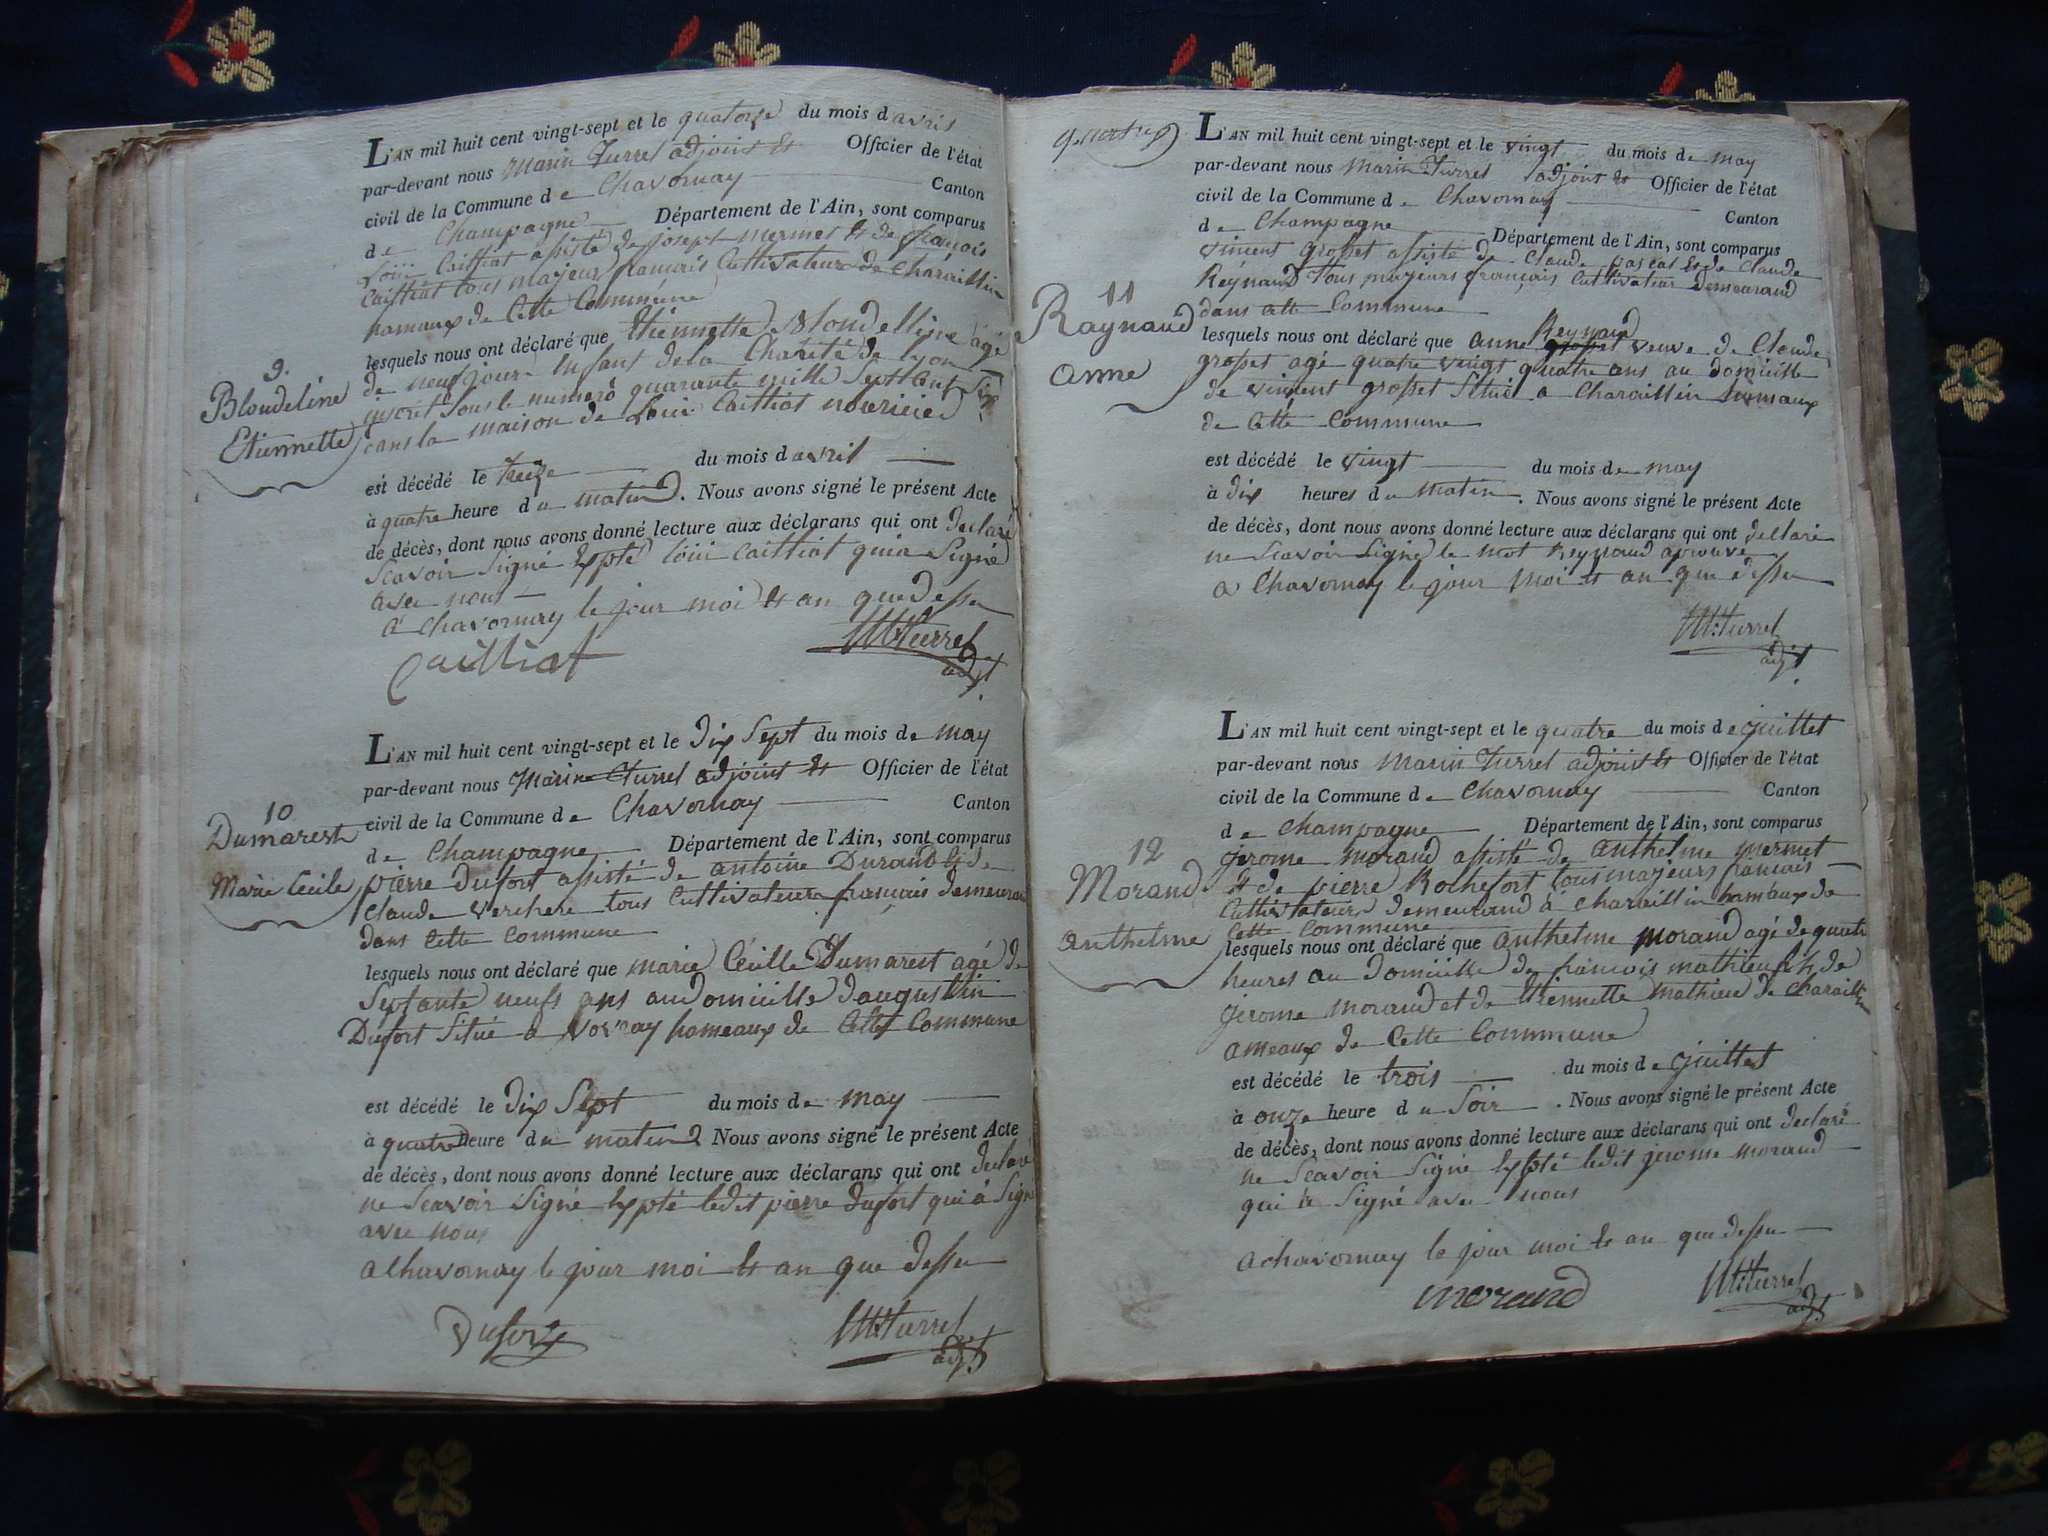 L'AN mil huit cent vingt-sept et le quatorze du mois d avril
par-devant nous Marin Turrel adjoint et Officier de l'état
civil de la Commune de Chavornay Canton
de Champagne Département de l'Ain, sont comparus
Loüi Cailliat assisté de joseph mermet et de françois
Cailliat tous majeurs francais Cultivateurs de Charaillin
hameaux de Cette Commune
lesquels nous ont déclaré que thiennette Blondelline agé
de neuf jours Enfant de la Charité de lyon
inscrit sous le numero quarante mille Sept Cent Six
dans la maison de Loüi Cailliat nouricier
9.
Blondeline
Etiennette
est décédé le treize du mois d avril
à quatre heure du matin. Nous avons signé le présent Acte
de décès, dont nous avons donné lecture aux déclarans qui ont declaré
Scavoir Signé Expté Loüi Cailliat qui a Signé
avec nous
a Chavornay le jour moi et an que dessu
Cailliat M: Turrel
adjt
L'AN mil huit cent vingt-sept et le dix Sept du mois de may
par-devant nous Marin Turrel adjoint et Officier de l'état
civil de la Commune de Chavornay Canton
de Champagne Département de l'Ain, sont comparus
pierre dufort assisté de antoine Durand et de
Claude verchere tous Cultivateurs francais demeurand
dans Cette Commune
10
Dumarest
Marie Cécile
lesquels nous ont déclaré que marie Cécille Dumarest agé de
Septante neufs ans au domicille daugustin
Dufort Situé a vornay hameaux de Cette Commune
est décédé le dix Sept du mois de may
à quatre heure du matin Nous avons signé le présent Acte
de décès, dont nous avons donné lecture aux déclarans qui ont declaré
ne Scavoir Signé Expté ledit pierre dufort qui à Signé
avec nous
a Chavornay le jour moi et an que dessu
Dufort M: Turrel
adjt
L'AN mil huit cent vingt-sept et le vingt du mois de may
par-devant nous Marin Turrel adjoint et Officier de l'état
civil de la Commune de Chavornay Canton
de Champagne Département de l'Ain, sont comparus
vincent grosset assisté de Claude pascal et de Claude
Reynaud tous majeurs français Cultivateur demeurand
dans Cette Commune
11
Raynaud
Anne
lesquels nous ont déclaré que anne Reynaud grosset veuve de Claude
grosset agé quatre veingt quatre ans au domicille
de vincent grosset Situé a Charaillin hameaux
de Cette Commune
est décédé le vingt du mois de may
à dix heures du matin. Nous avons signé le présent Acte
de décès, dont nous avons donné lecture aux déclarans qui ont declaré
ne Scavoir Signé le mot Reynaud aprouvé
a Chavornay le jour moi et an que dessu
M: Turrel
adjt
L'AN mil huit cent vingt-sept et le quatre du mois de juillet
par-devant nous Marin Turrel adjoint et Officier de l'état
civil de la Commune de Chavornay Canton
de Champagne Département de l'Ain, sont comparus
jerome morand assisté de anthelme mermet
et de pierre Rochefort tous majeurs francais
Cultivateurs demeurand à Charaillin hameaux de
Cette Commune
12
Morand
Anthelme
lesquels nous ont déclaré que anthelme morand agé de quatre
heures au domicille de francois mathieu fils de
jerome morand et de thiennette mathieu de Charaillin
ameaux de Cette Commune
est décédé le trois du mois de juillet
à onze heure du Soir. Nous avons signé le présent Acte
de décès, dont nous avons donné lecture aux déclarans qui ont declaré
ne Scavoir Signé Expté ledit jerome morand
qui à Signé avec nous
a chavornay le jour moi et an que dessu
morand M: Turrel
adjt